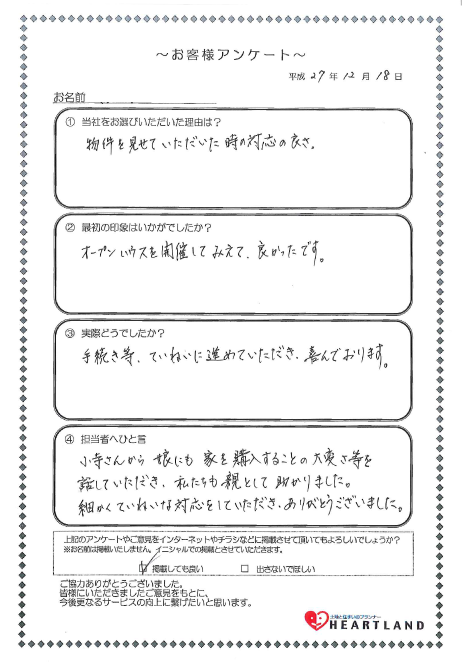 ～お客様アンケート～
平成 27 年 12 月 18 日
お名前
① 当社をお選びいただいた理由は？
物件を見せていただいた時の対応の良さ。
② 最初の印象はいかがでしたか？
オープンハウスを開催してみえて、良かったです。
③ 実際どうでしたか？
手続き等、ていねいに進めていただき、喜んでおります。
④ 担当者へひと言
小寺さんから娘にも家を購入することの大変さ等を
話していただき、私たちも親として助かりました。
細かくていねいな対応をしていただき、ありがとうございました。
上記のアンケートやご意見をインターネットやチラシなどに掲載させて頂いてもよろしいでしょうか？
※お名前は掲載いたしません。イニシャルでの掲載とさせていただきます。
☑ 掲載しても良い □ 出さないでほしい
ご協力ありがとうございました。
皆様にいただきましたご意見をもとに、
今後更なるサービスの向上に繋げたいと思います。
土地と住まいのプランナー
HEARTLAND